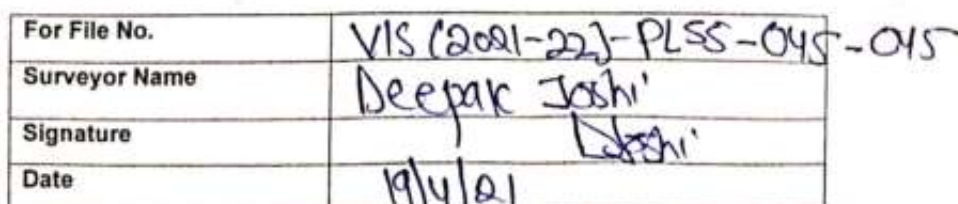 For File No. VIS (2021-22)-PL55-045-045
Surveyor Name Deepak Joshi
Signature DJoshi
Date 19/4/21